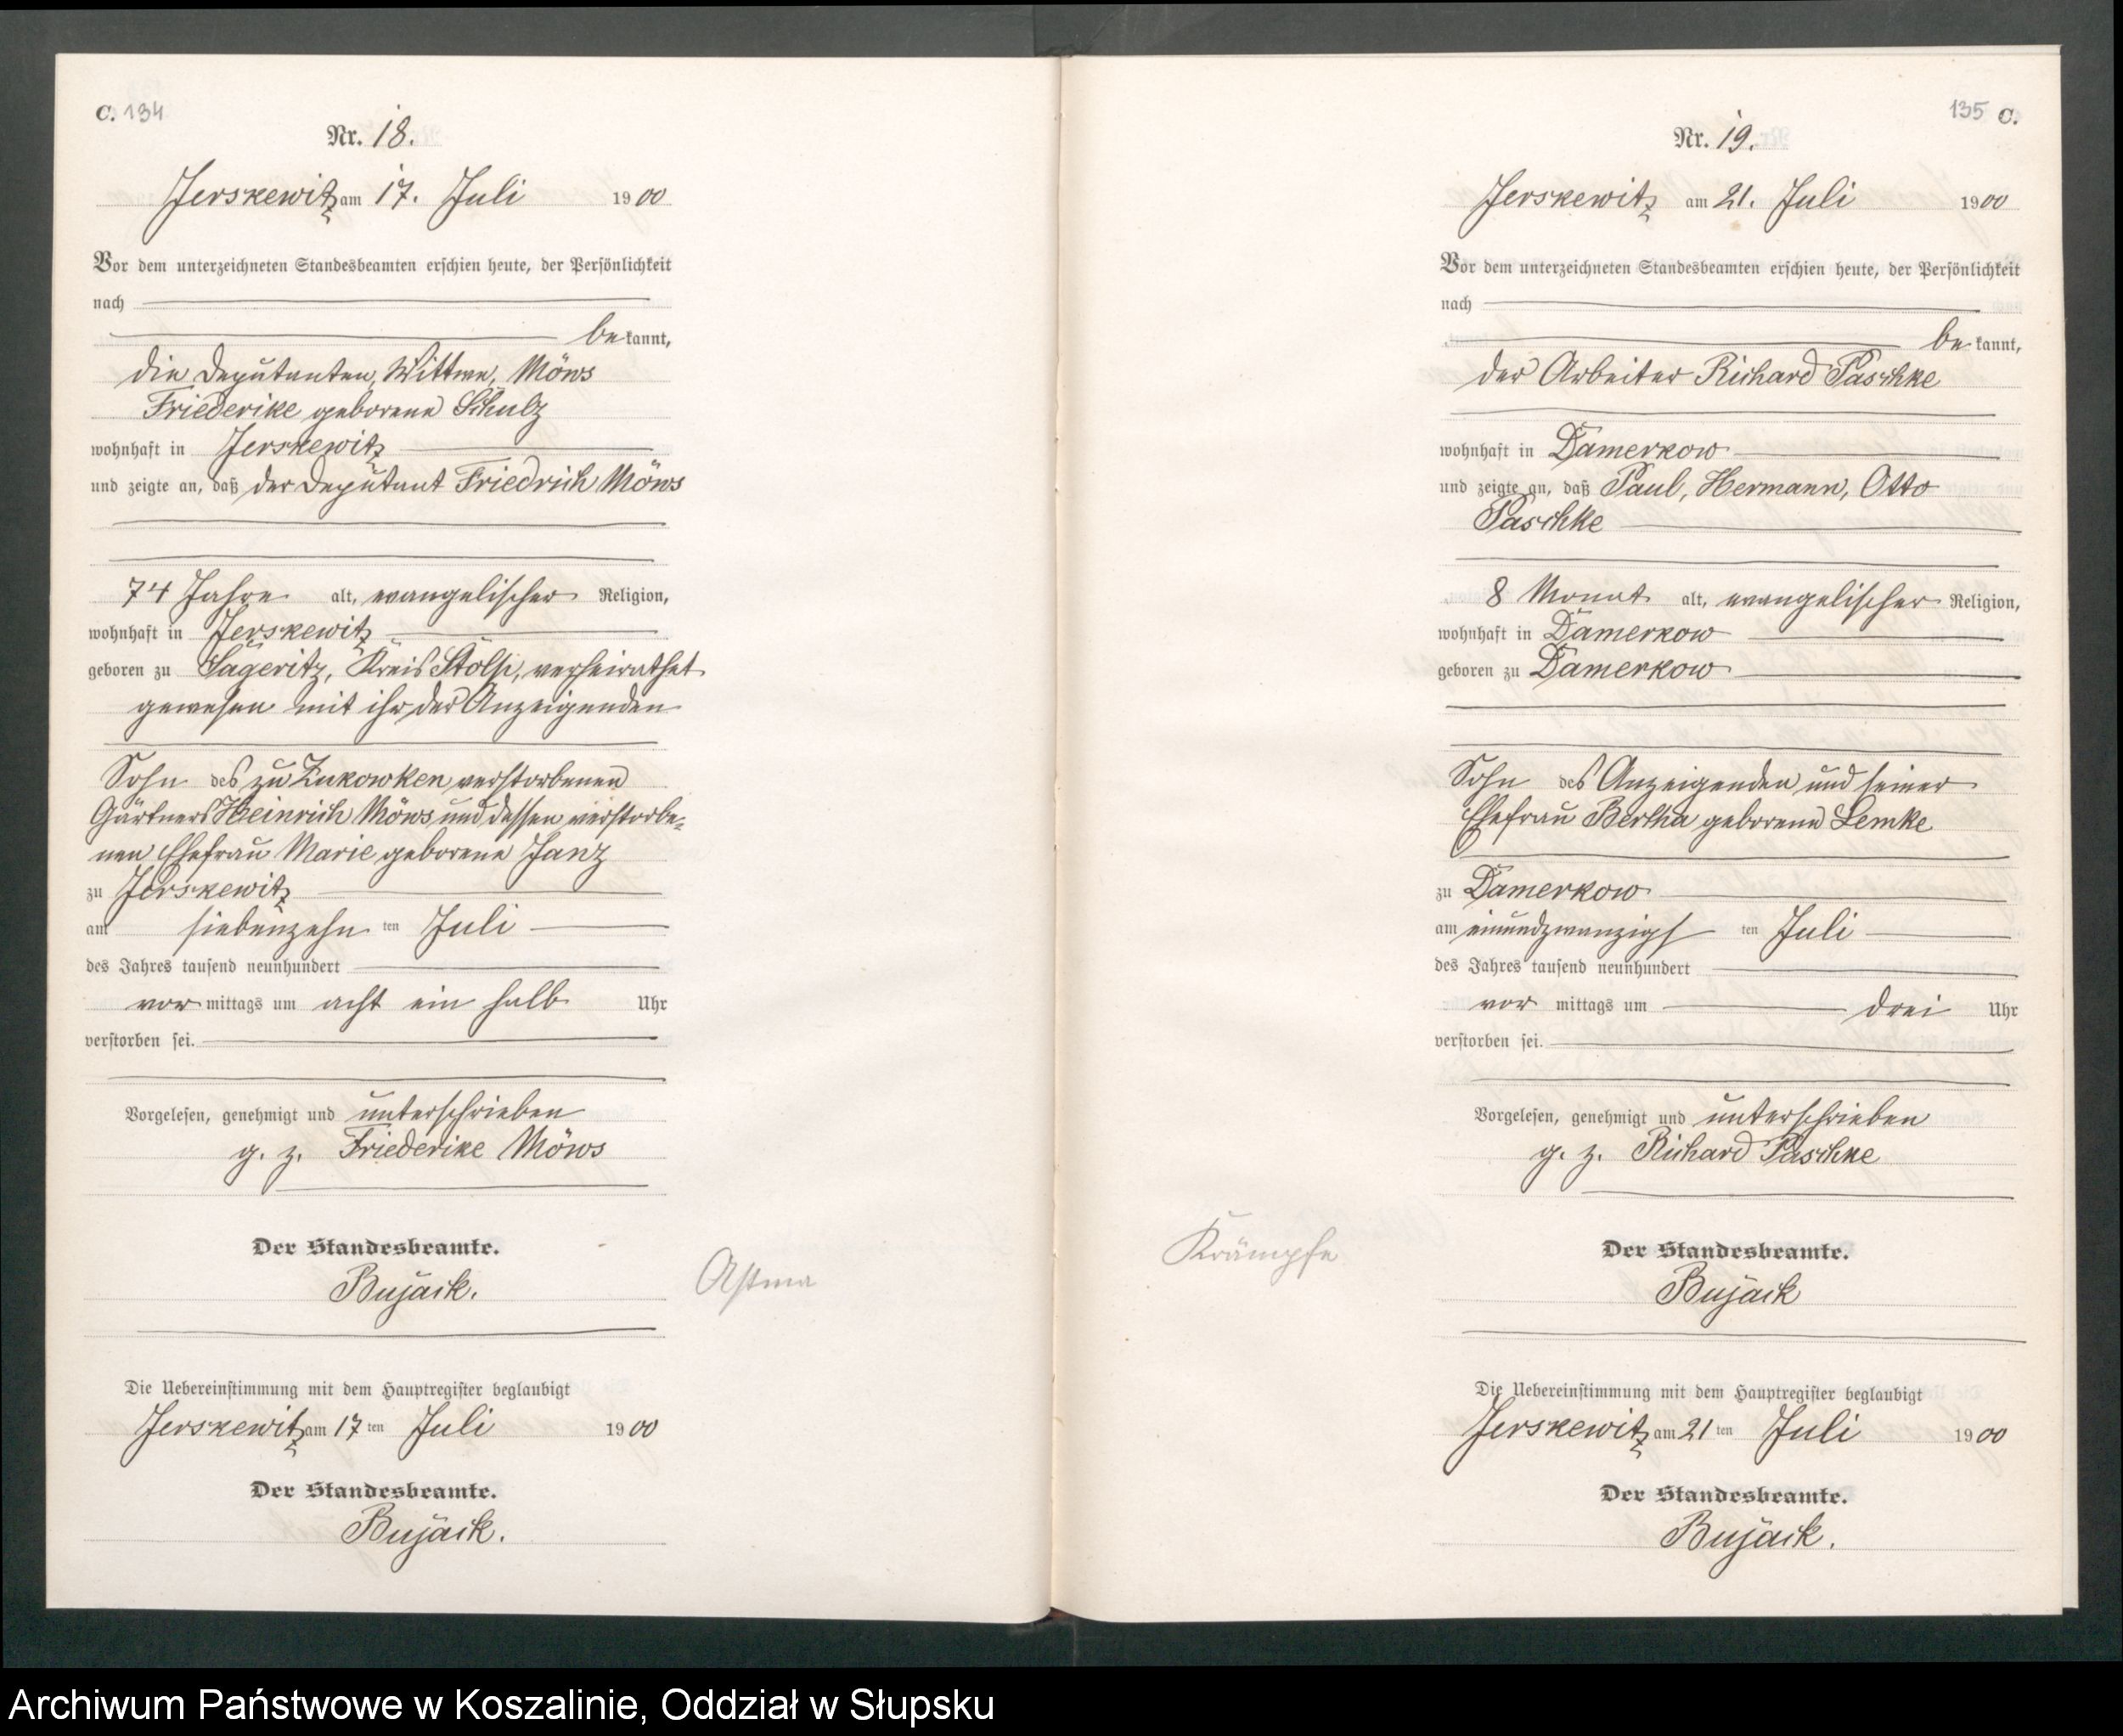 C. 134
Nr. 18.
Jerskewitz am 17. Juli 1900
Vor dem unterzeichneten Standesbeamten erschien heute, der Persönlichkeit
nach
bekannt,
die Deputanten, Wittwe, Möws
Friederike geborene Schulz
wohnhaft in Jerskewitz
und zeigte an, daß der Deputant Friedrich Möws
74 Jahre alt, evangelischer Religion,
wohnhaft in Jerskewitz
geboren zu Sageritz, Kreis Stolp, verheirathet
gewesen mit ihr der Anzeigenden
Sohn des zu Zukowken verstorbenen
Gärtners Heinrich Möws und dessen verstorbe-
nen Ehefrau Marie geborene Janz
zu Jerskewitz
am siebenzehn ten Juli
des Jahres tausend neunhundert
vor mittags um acht ein halb Uhr
verstorben sei.
Vorgelesen, genehmigt und unterschrieben
g. z. Friederike Möws
Der Standesbeamte.
Bujack.
Astma
Die Uebereinstimmung mit dem Hauptregister beglaubigt
Jerskewitz am 17 ten Juli 1900
Der Standesbeamte.
Bujack.
135 C.
Nr. 19.
Jerskewitz am 21. Juli 1900
Vor dem unterzeichneten Standesbeamten erschien heute, der Persönlichkeit
nach
bekannt,
der Arbeiter Richard Paschke
wohnhaft in Damerkow
und zeigte an, daß Paul, Hermann, Otto
Paschke
8 Monat alt, evangelischer Religion,
wohnhaft in Damerkow
geboren zu Damerkow
Sohn des Anzeigenden und seiner
Ehefrau Bertha geborene Lemke
zu Damerkow
am einundzwanzigs ten Juli
des Jahres tausend neunhundert
vor mittags um drei Uhr
verstorben sei.
Vorgelesen, genehmigt und unterschrieben
g. z. Richard Paschke
Krämpfe
Der Standesbeamte.
Bujack
Die Uebereinstimmung mit dem Hauptregister beglaubigt
Jerskewitz am 21 ten Juli 1900
Der Standesbeamte.
Bujack.
Archiwum Państwowe w Koszalinie, Oddział w Słupsku